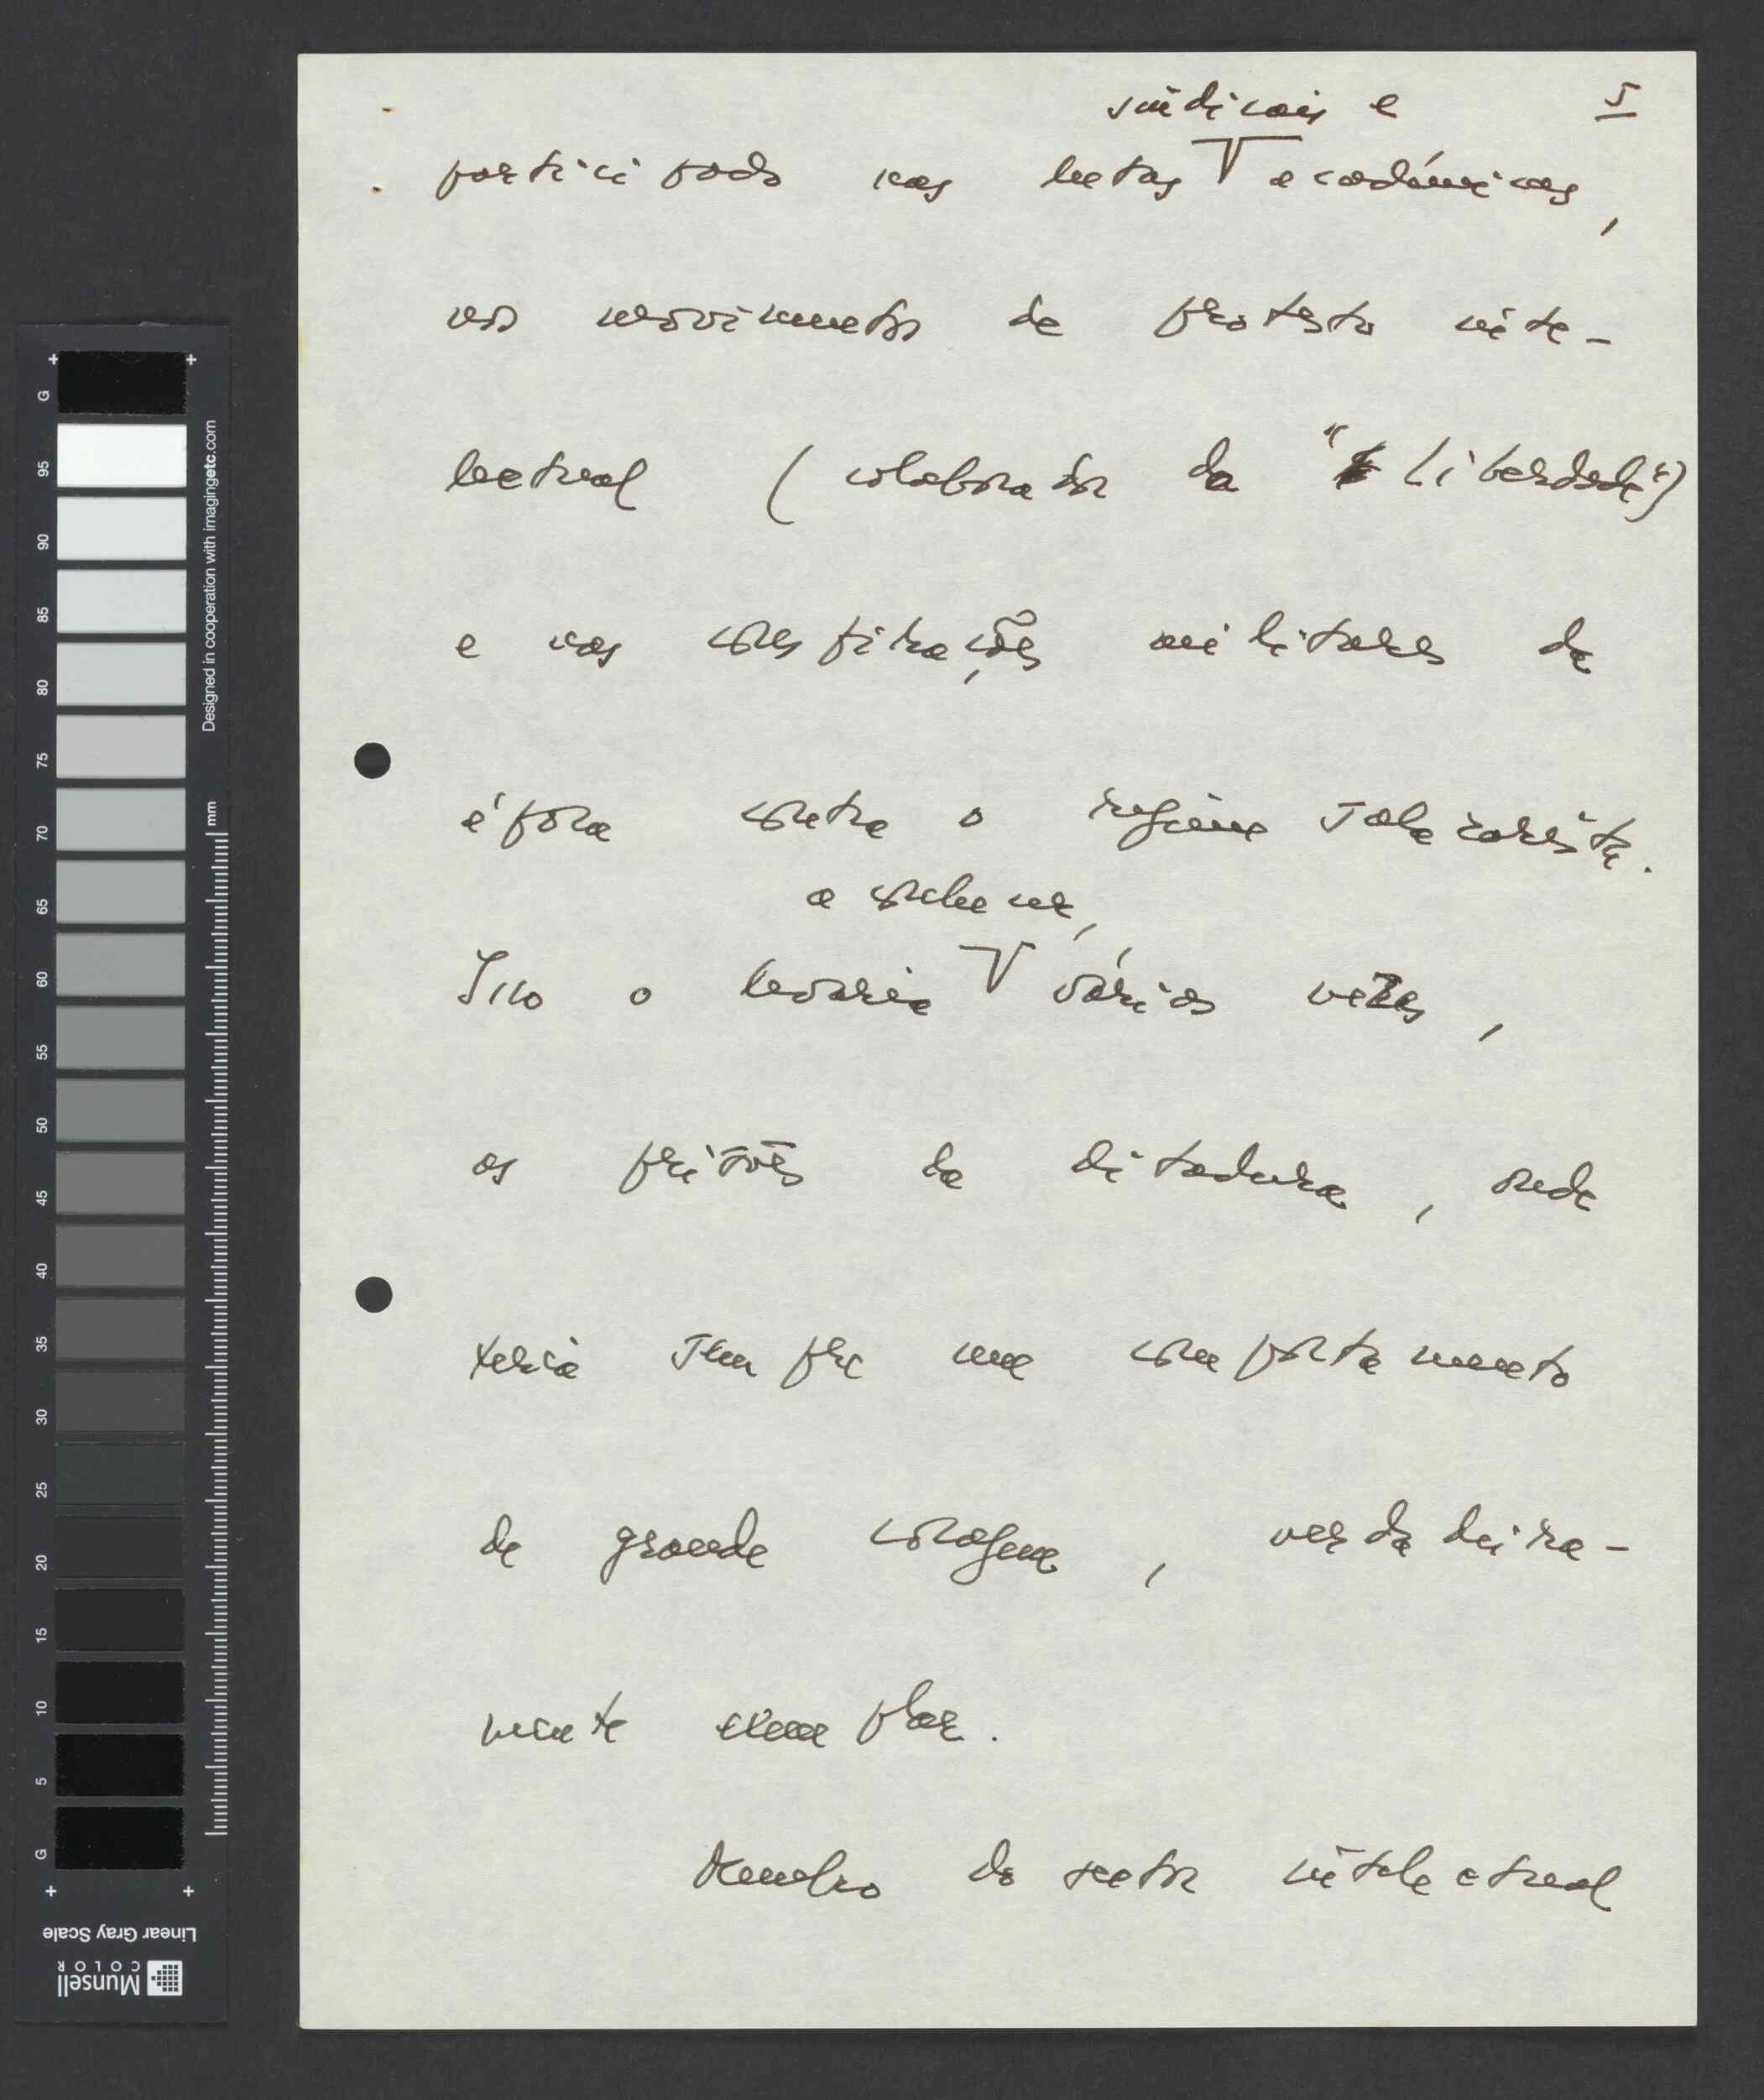 5
sindicais e
participado nas lutas académicas,
nos movimentos de protesto inte-
lectual (colaborador da "Liberdade")
e nas conspirações militares da
época contra o regime salazarista.
a conhecer,
Isso o levaria várias vezes,
as prisões da ditadura, onde
teria sempre um comportamento
de grande coragem, verdadeira-
mente exemplar.
Membro do sector intelectual
G
95
90
85
80
75
70
65
60
55
50
45
40
35
30
25
20
15
10
5
G
Designed in cooperation with imagingetc.com
mm
Linear Gray Scale
Munsell
COLOR